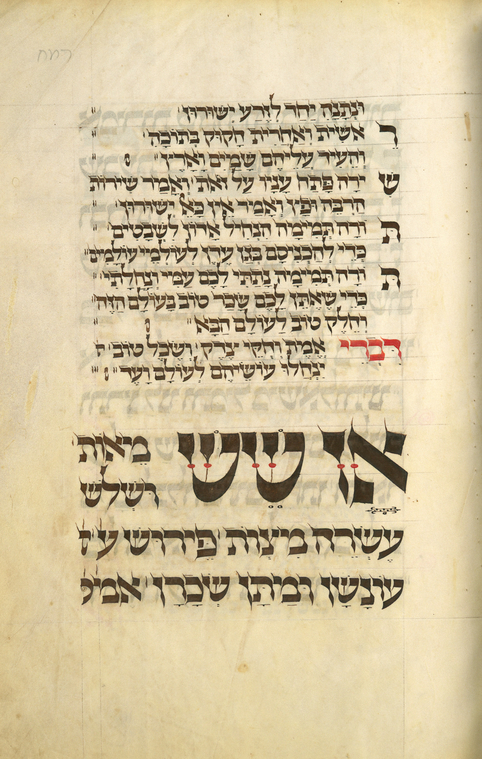 וּנְתָנָהּ יַחַד לְזֶרַע יְשׁוּרוּן
רֵאשִׁית וְאַחֲרִית חָקוּק בְּתוֹכָהּ
וְהֵעִיד עֲלֵיהֶם שָׁמַיִם וָאָרֶץ
שִׁירָה פָּתַח עָנָו עַל זֹאת וַיֹּאמַר שִׁירוֹת
הַרְבֵּה וּפָץ וְאָמַר אֵין כָּאֵל יְשׁוּרוּן
תּוֹרָה תְּמִימָה הִנְחִיל אָדוֹן לִשְׁבָטִים
כְּדֵי לְהַכְנִיסָם בְּגַן עֵדֶן לְעוֹלְמֵי עוֹלָמִים
תּוֹרָה תְּמִימָה נָתַתִּי לָכֶם עַמִּי וְנַחֲלָתִי
כְּדֵי שֶׁאֶתֵּן לָכֶם שָׂכָר טוֹב בָּעוֹלָם הַזֶּה
וְחֵלֶק טוֹב לָעוֹלָם הַבָּא
דִּבְרֵי אֱמֶת וְחֻקֵּי צֶדֶק וְשֵׂכֶל טוֹב
יִנְחֲלוּ עוֹשֵׂיהֶם לְעוֹלָם וָעֶד
אָז שֵׁשׁ מֵאוֹת
וּשְׁלֹשׁ
עֶשְׂרֵה מִצְוֹת פֵּירוּשׁ
עוֹנְשָׁן וּמַתַּן שְׂכָרָן